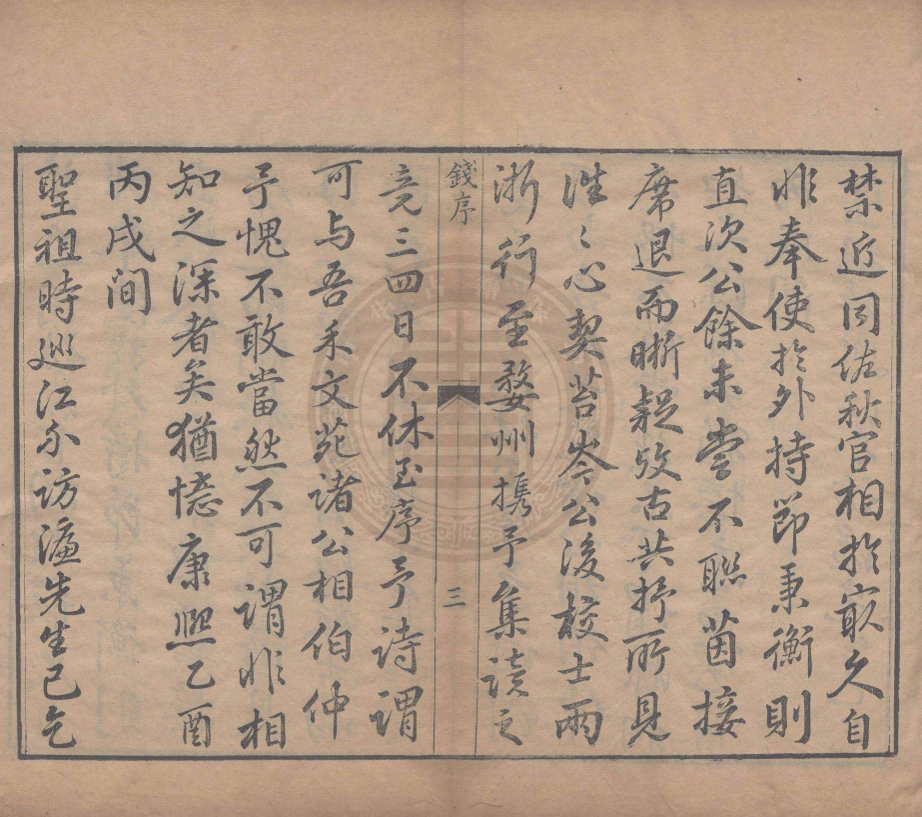 禁近同佐秋官相於最久自
非奉使於外持節秉衡則
直次公餘未嘗不聯茵接
席退而晰疑攷古共抒所見
淮〻心契苔岑公後校士兩
浙行至婺州攜予集讀之
錢序
三
竟三四日不休至序予詩謂
可与吾禾文苑諸公相伯仲
予愧不敢當然不可謂非相
知之深者矣猶憶康熙乙酉
丙戌间
聖祖時巡江介访濂先生已乞